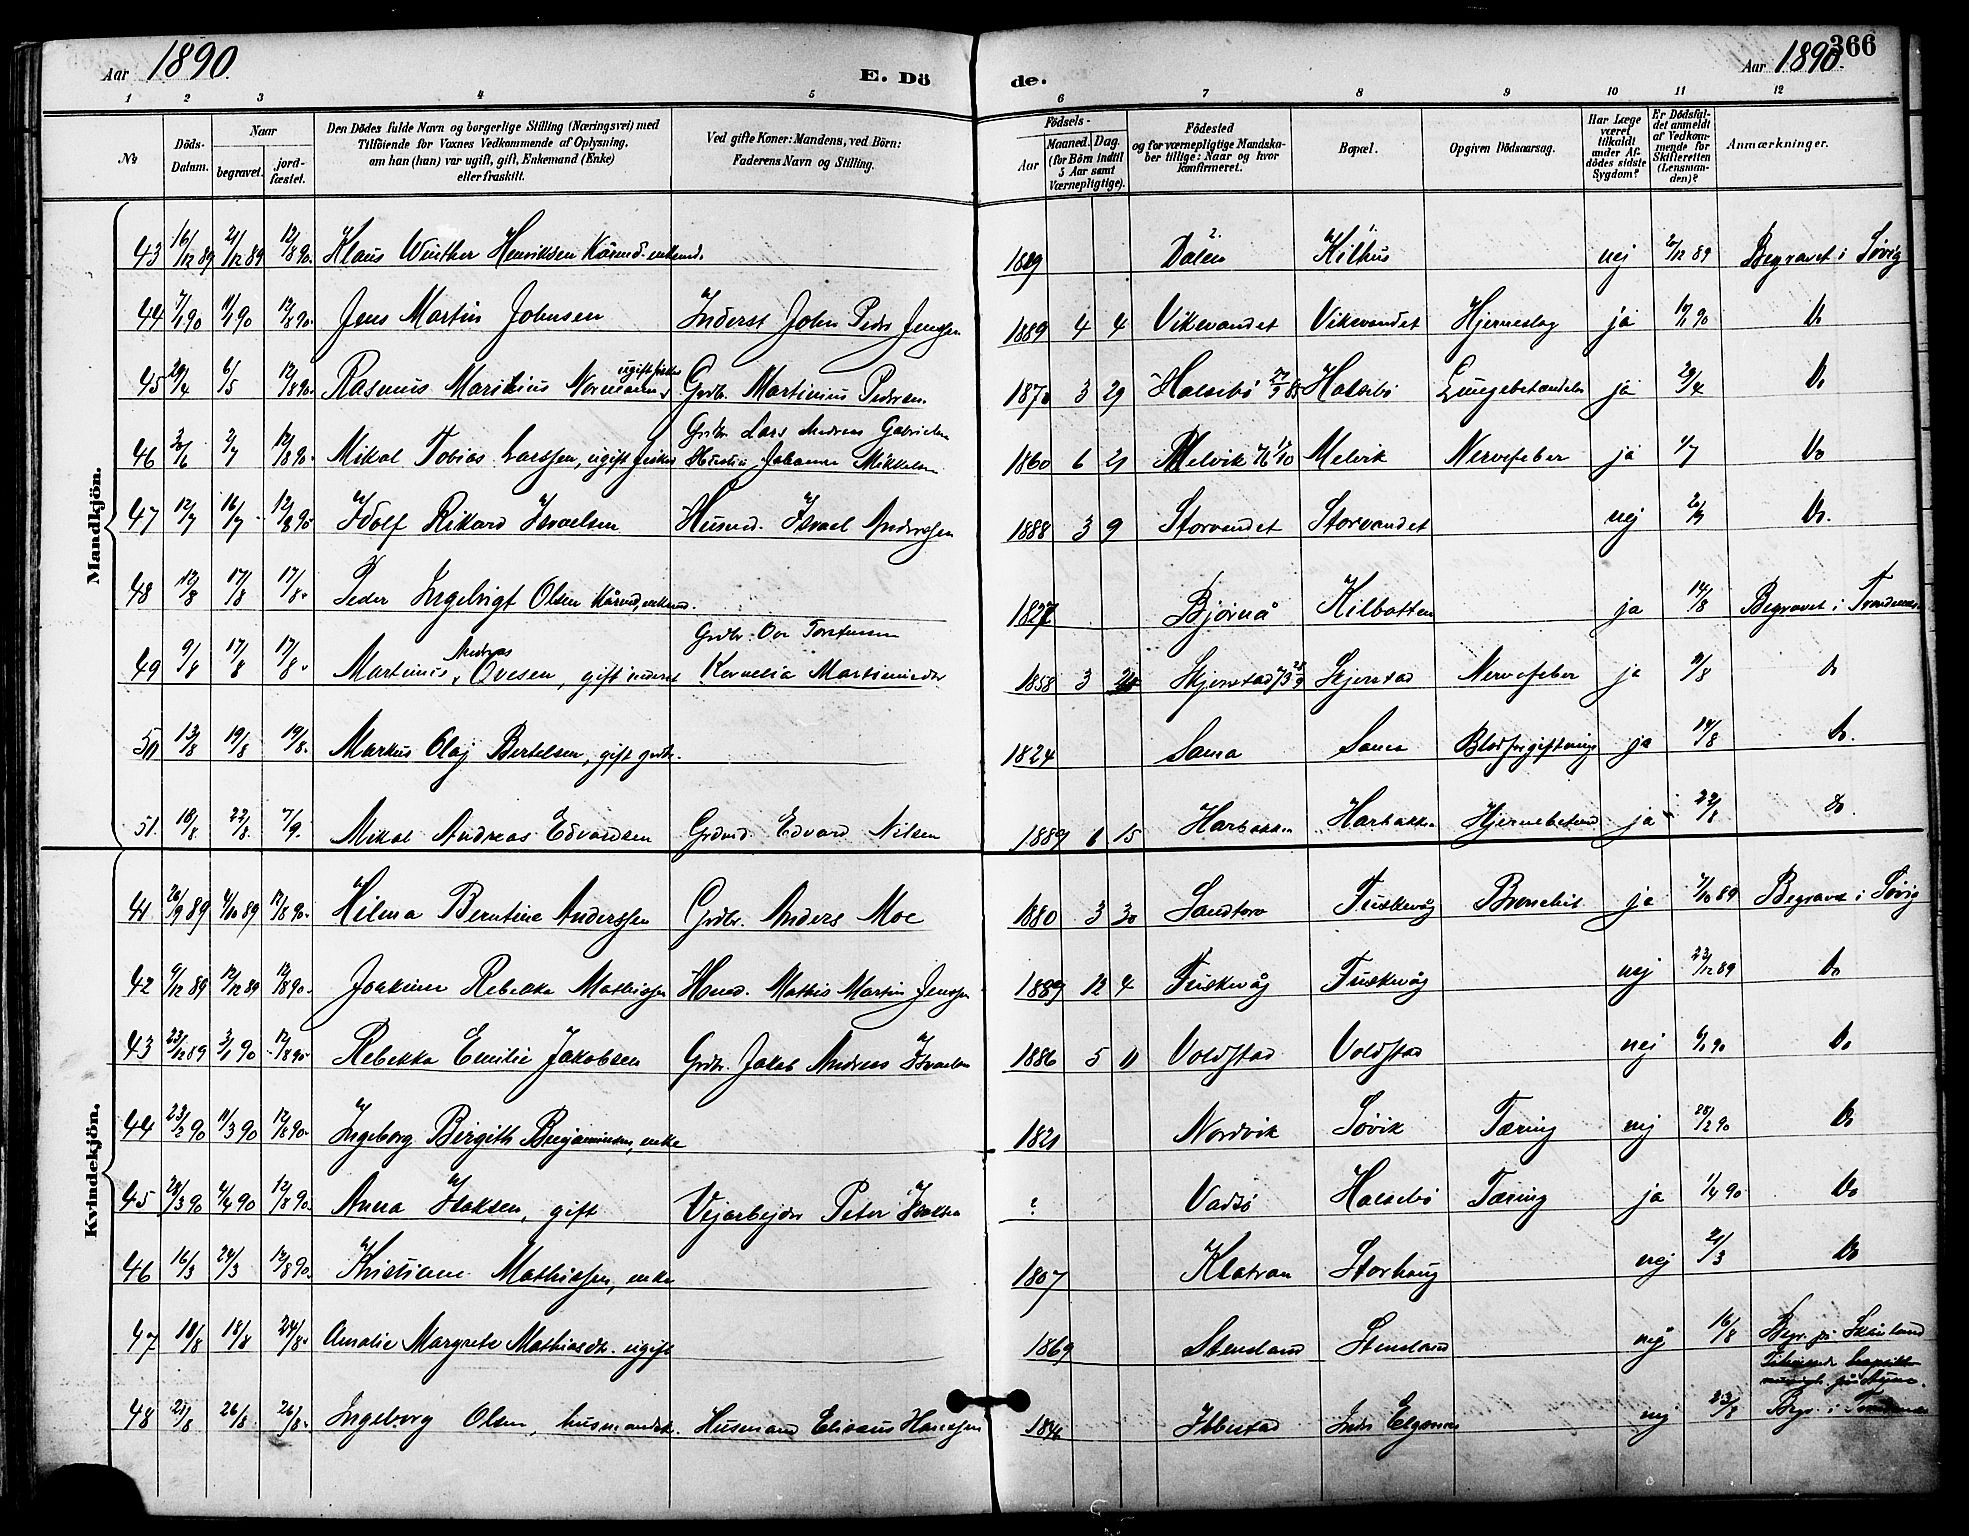 Aar 1890. E. Döde. Aar 1890. 366
1 2 3 4 5 6 7 8 9 10 11 12
No. Döds-Datum. Naar begravet. jordfæstet. Den Dödes fulde Navn og borgerlige Stilling (Næringsvei) med Tilföiende for Voxnes Vedkommende af Oplysning, om han (hun) var ugift, gift, Enkemand (Enke) eller fraskilt. Ved gifte Koner: Mandens, ved Börn: Faderens Navn og Stilling. Födsels- Aar Maaned. Dag. (for Börn indtil 5 Aar samt Værnepligtige). Födested og for værnepligtige Mandskaber tillige: Naar og hvor konfirmeret. Bopæl. Opgiven Dödsaarsag. Har Læge været tilkaldt under Afdödes sidste Sygdom? Er Dödsfaldet anmeldt af Vedkommende for Skifteretten (Lensmanden)? Anmærkninger.
Mandkjön.
43 16/12 89 21/12 89 12/8 90. Klaus Winther Henriksen 1889 Dalen Kilhus nej /12 89 Begravet i Søvig
44 7/1 90 11/1 90 12/8 90. Jens Martin Johnsen Inderst John Peder Jensen 1889 4 4 Vikevandet Vikevandet Hjerneslag ja 17/1 90 Do
45 29/4 6/5 12/8 90. Rasmus ugift fisker Grdbr. Martinius Pedersen 3 29 Halsebø Halsebø Lungebetændelse ja 29/4 Do
46 /6 /7 12/8 90. Mikal Tobias Larssen, ugift fisker Grdbr. Lars Andreas Gabrielsen Hustru Johanna 1860 6 21 Melvik Melvik Nervefeber ja 1/7 Do
47 12/7 16/7 12/8 90 Idolf Rikard Israelsen Husmd. Israel Anderssen 1888 3 9 Storvandet Storvandet nej Do.
48 12/8 17/8 17/8. Peder Ingebrigt Olsen 1827 Bjørnå Kilbotten ja 14/8 Begravet i Trondenes
49 9/8 17/8 17/8. Martinus Andreas Ovesen, gift inderst Grdbr. Ove Torstensen Kornelia 1858 3 Skjerstad Skjerstad Nervefeber ja /8 Do
50 13/8 19/8 19/8. Markus Olaj Bertelsen, gift grdbr. 1824 Sama Sama Blodforgiftning ja 14/8 Do.
51. 18/8 22/8. 7/9. Mikal Andreas Edvardsen Grdmd. Edvard Nilsen 1889 6 15 Harbakken Harbakken ja 22/8 Do.
Kvindekjön.
41 26/9 89 4/10 89 12/8 90. Hilma Berntine Anderssen Grdbr. Anders Moe 1880 3 30 Sandtorv Fuskevåg Bronchit ja 7/10 89 Begravet i Søvig
42 9/12 89 12/12 89 12/8 90. Rebekka Mathissen Husmd. Mathis Martin Jenssen 1889 12 4 Fuskevåg Fuskevåg nej 23/12 89 Do
43 23/12 89 3/1 90 12/8 90 Rebekka Emilie Jakobsen Grdbr. Jakob Andreas Israelsen 1886 5 11 Voldstad Voldstad nej 6/1 90 Do
44 23/2 90 11/3 90 12/8 90. Ingeborg Birgith Benjaminsen, enke 1821 Nordvik Søvik Tæring nej 28/2 90 Do
45 28/3 90 4/4 90 12/8 90. Anna Isaksen, gift Vejarbejder Peter Isaksen ? Vadsø Halsebø Tæring ja 1/4 90 Do
46 16/3 24/3 12/8 90. Kristiane Mathissen, enke 1807 Klatran Storhaug nej 21/3 Do
47 10/8 18/8 24/8. Amalie Margrete Mathiasdtr. ugift 1869 Stensland Stensland nej 16/8 Begr. på Skånland
48 21/8 26/8. 26/8. Ingeborg Olsen, Husmand Eliseus Hanssen Ibbestad Elgsnes nej 23/8 Begr. i Trondenes